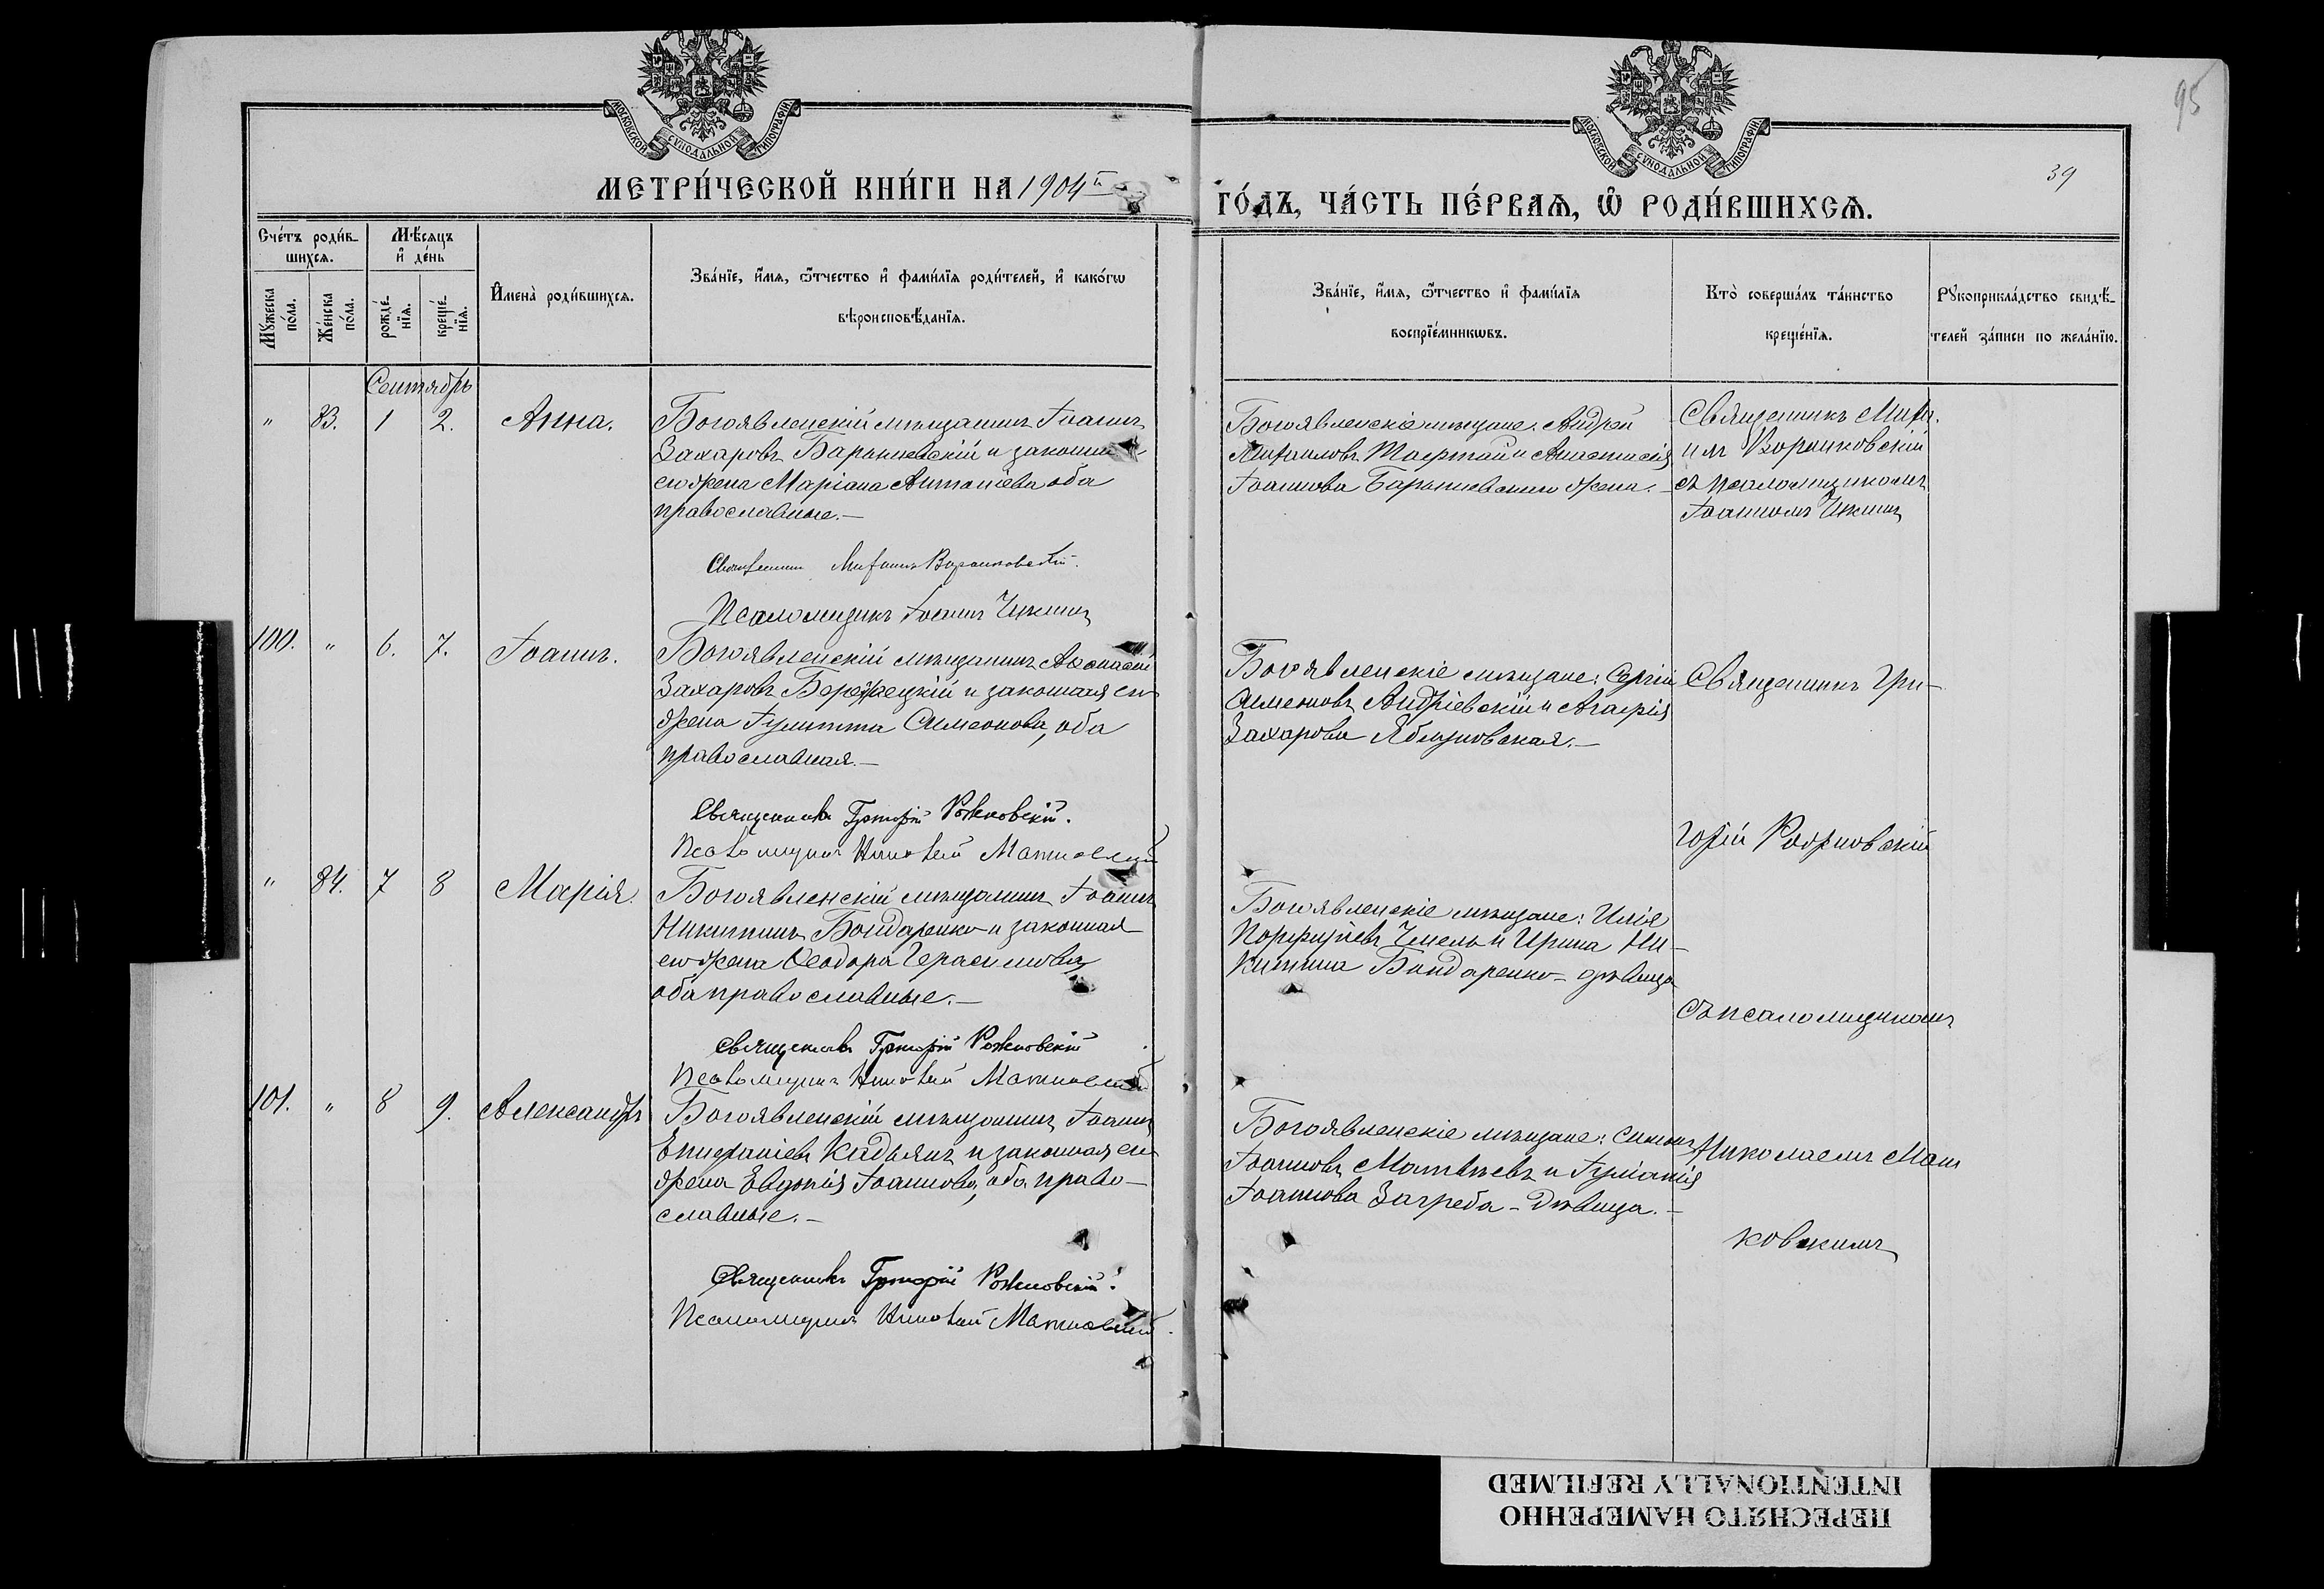 95
39
МОСКОВСКОЙ СѴНОДАЛЬНОЙ ТИПОГРАФІИ
МОСКОВСКОЙ СѴНОДАЛЬНОЙ ТИПОГРАФІИ
МЕТРИ́ЧЕСКОЙ КНИ́ГИ НА 1904й
ГО́ДЪ, ЧА́СТЬ ПЕ́РВАѦ, Ѡ҆ РОДИ́ВШИХСѦ.
Сче́тъ роди́в-
шихсѧ.
Мѣ́сѧцъ
и҆ де́нь
Мꙋ́жеска
по́ла.
Же́нска
по́ла.
рожде́-
нїѧ.
креще́-
нїѧ.
И҆мена̀ роди́вшихсѧ.
Зва́нїе, и҆́мѧ, ѻ҆́тчество и҆ фами́лїѧ роди́телей, и҆ како́гѡ
вѣроисповѣ́данїѧ.
Зва́нїе, и҆́мѧ, ѻ҆́тчество и҆ фами́лїѧ
воспрїе́мникѡвъ.
Кто̀ соверша́лъ та́инство
креще́нїѧ.
Рꙋкоприкла́дство свидѣ́-
телей за́писи по жела́нїю.
Сентябрь
" 83. 1 2. Анна.
Богоявленскій мѣщанинъ Іоаннъ
Захаровъ и законная
его жена Маріана Антоніева оба
православные.—
Священникъ Михаилъ Воронковскій.
Псаломщикъ Іоаннъ
Богоявленскіе мѣщане: Андрей
Михаиловъ и Анастасія
Іоаннова жена.—
Священникъ Миха-
илъ Воронковскій
съ псаломщикомъ
Іоанномъ
100. " 6. 7. Іоаннъ.
Богоявленскій мѣщанинъ Аѳанасій
Захаровъ Бережецкій и законная его
жена Іулитта Симеонова, оба
православная.—
Священникъ Григорій Рожковскій.
Псаломщикъ Николай
Богоявленскіе мѣщане: Сергій
Симеоновъ Андріевскій и Агафія
Захарова Яблуновская.—
Священникъ Гри-
горій Рожковскій
" 84. 7 8 Марія.
Богоявленскій мѣщанинъ Іоаннъ
Никитинъ Бондаренко и законная
его жена Ѳеодора Герасимова,
оба православные.—
Священникъ Григорій Рожковскій
Псаломщикъ Николай
Богоявленскіе мѣщане: Илія
Порфиріевъ Чмель и Ирина Ни-
китина Бондаренко - дѣвица
съ псаломщикомъ
101. " 8 9. Александръ
Богоявленскій мѣщанинъ Іоаннъ
Епифаніевъ Кадьянъ и законная его
жена Евдокія Іоаннова, оба право-
славные.—
Священникъ Григорій Рожковскій.
Псаломщикъ Николай
Богоявленскіе мѣщане: Симонъ
Іоанновъ Матвѣевъ и Іуліанія
Іоаннова Загреба - дѣвица.—
Николаемъ
ковскимъ
ПЕРЕСНЯТО НАМЕРЕННО
INTENTIONALLY REFILMED